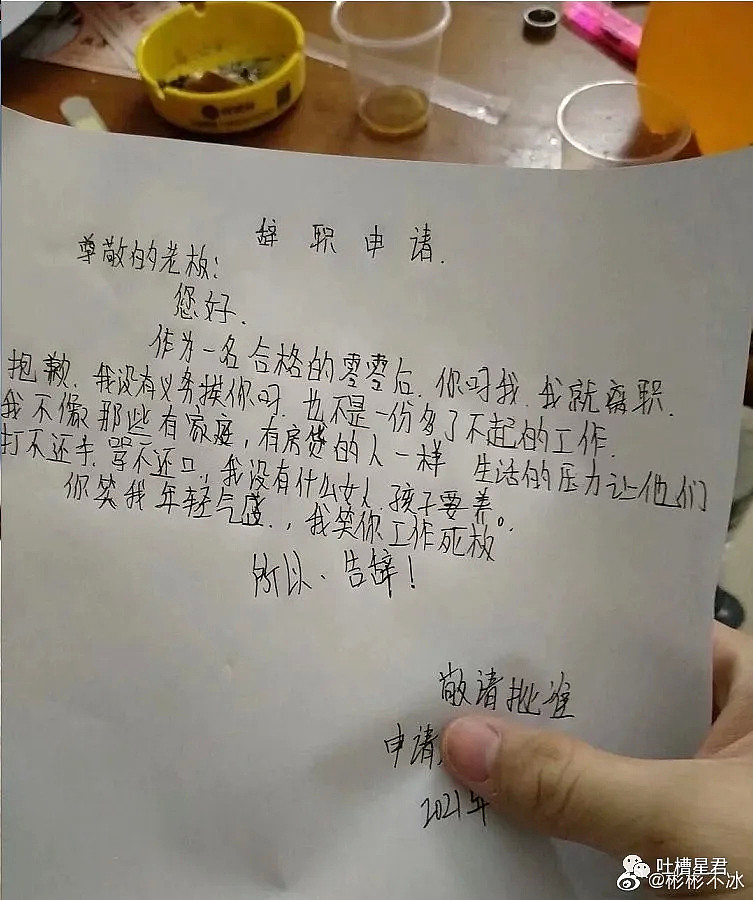 辞职申请.
尊敬的老板：
您好.
作为一名合格的零零后.你叼我.我就离职.
抱歉.我没有义务挨你叼.也不是一份多了不起的工作.
我不像那些有家庭，有房贷的人一样 生活的压力让他们
打不还手.骂不还口，我没有什么女人.孩子要养。
你笑我年轻气盛.，我笑你工作死板
所以、告辞！
敬请批准
申请
2021年
吐槽星君
@彬彬不冰